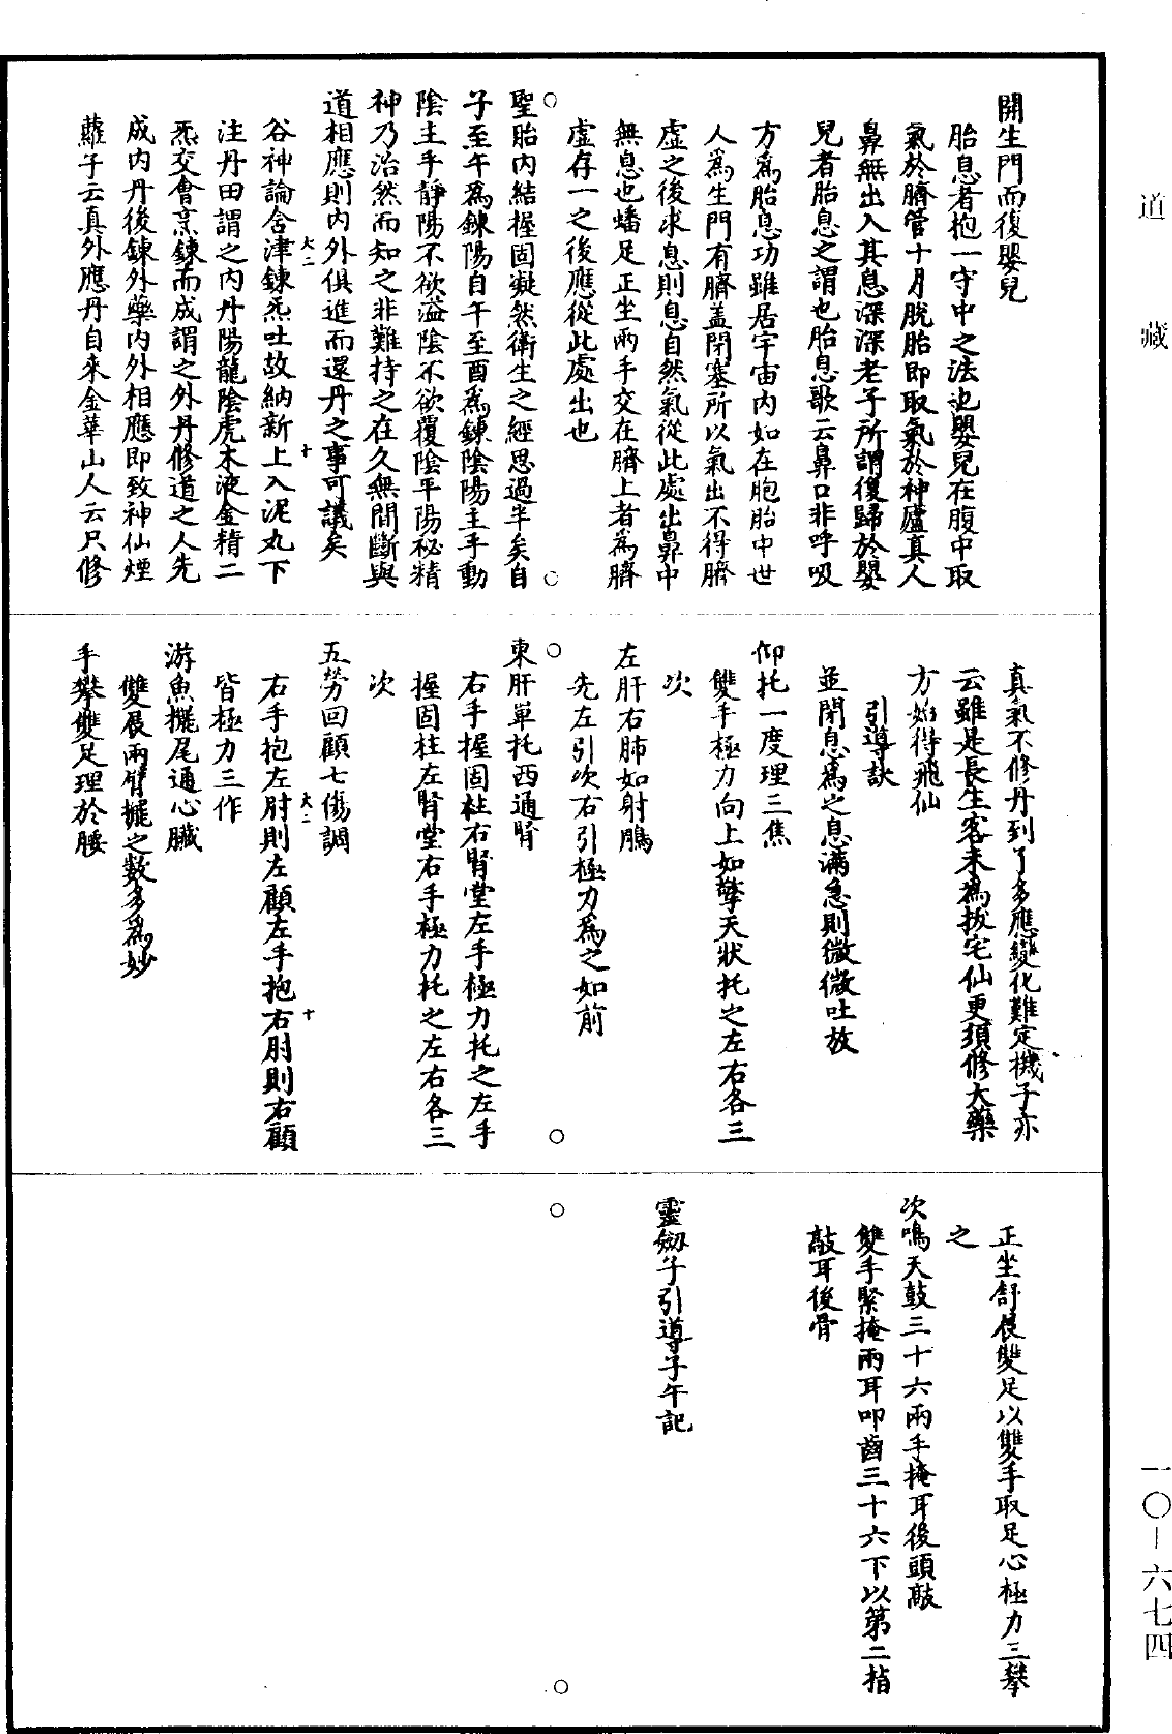 道藏
開生門而復嬰兒
胎息者抱一守中之法也嬰兒在腹中取
氣於臍管十月脫胎即取氣於神廬真人
鼻無出入其息深深老子所謂復歸於嬰
兒者胎息之謂也胎息歌云鼻口非呼吸
方爲胎息功雖居宇宙內如在胞胎中世
人爲生門有臍盖閉塞所以氣出不得臍
虛之後求息則息自然氣從此處出鼻中
無息也蟠足正坐兩手交在臍上者爲臍
虛存一之後應從此處出也
聖胎內結握固凝然衛生之經思過半矣自
子至午爲鍊陽自午至酉爲鍊陰陽主乎動
陰主乎靜陽不欲溢陰不欲覆陰平陽秘精
神乃治然而知之非難持之在久無間斷與
道相應則內外俱進而還丹之事可議矣
谷神論含津鍊炁吐故納新上入泥丸下
注丹田謂之內丹陽龍陰虎木液金精二
炁交會烹鍊而成謂之外丹修道之人先
成內丹後鍊外藥內外相應即致神仙煙
蘿子云真外應丹自來金華山人云只修
大二
十
真氣不修丹到了多應變化難定機子亦
云雖是長生客未爲拔宅仙更須修大藥
方始得飛仙
引導訣
並閉息爲之息滿急則微微吐放
仰托一度理三焦
雙手極力向上如擎天狀托之左右各三
次
左肝右肺如射鵰
先左引次右引極力爲之如前
東肝單托西通腎
右手握固柱右腎堂左手極力托之左手
握固柱左腎堂右手極力托之左右各三
次
五勞回顧七傷調
右手抱左肘則左顧左手抱右肘則右顧
皆極力三作
大二
十
游魚擺尾通心臟
雙展兩臂擺之數多爲妙
手攀雙足理於腰
正坐舒展雙足以雙手取足心極力三攀
之
次鳴天鼓三十六兩手掩耳後頭敲
雙手緊掩兩耳叩齒三十六下以第二指
敲耳後骨
靈劒子引導子午記
一〇—六七四